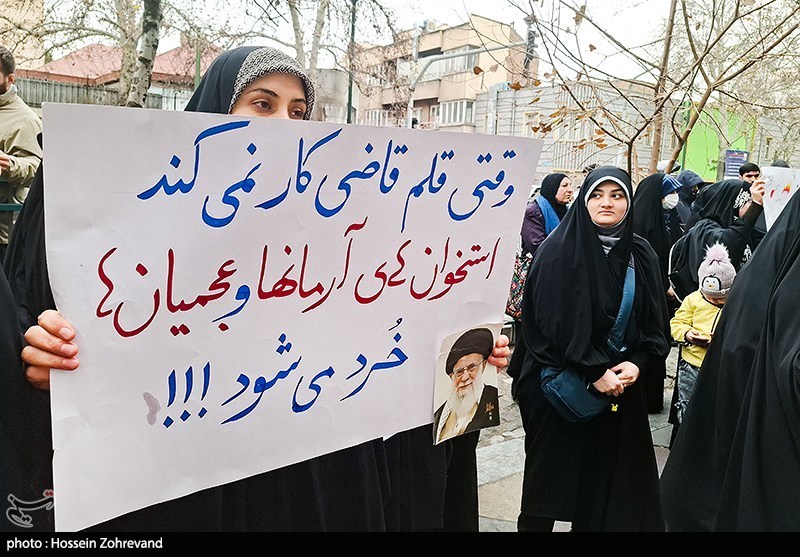 وقتی قلم قاضی کار نمی کند
استخوان های آرمانها و عجمیان ها
خُرد می شود !!!
photo : Hossein Zohrevand